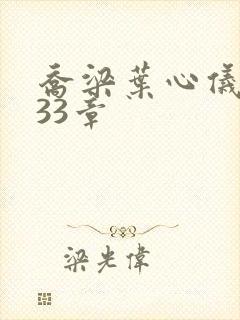 喬梁葉心儀
33章
梁光偉